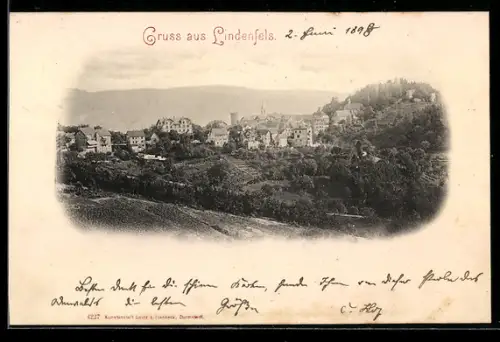 Gruss aus Lindenfels.
2. Juni 1898
Besten Dank für die schönen Karten, sende Ihnen von dieser Perle des
Odenwalds die besten Grüße
4237 Kunstanstalt Darmstadt.